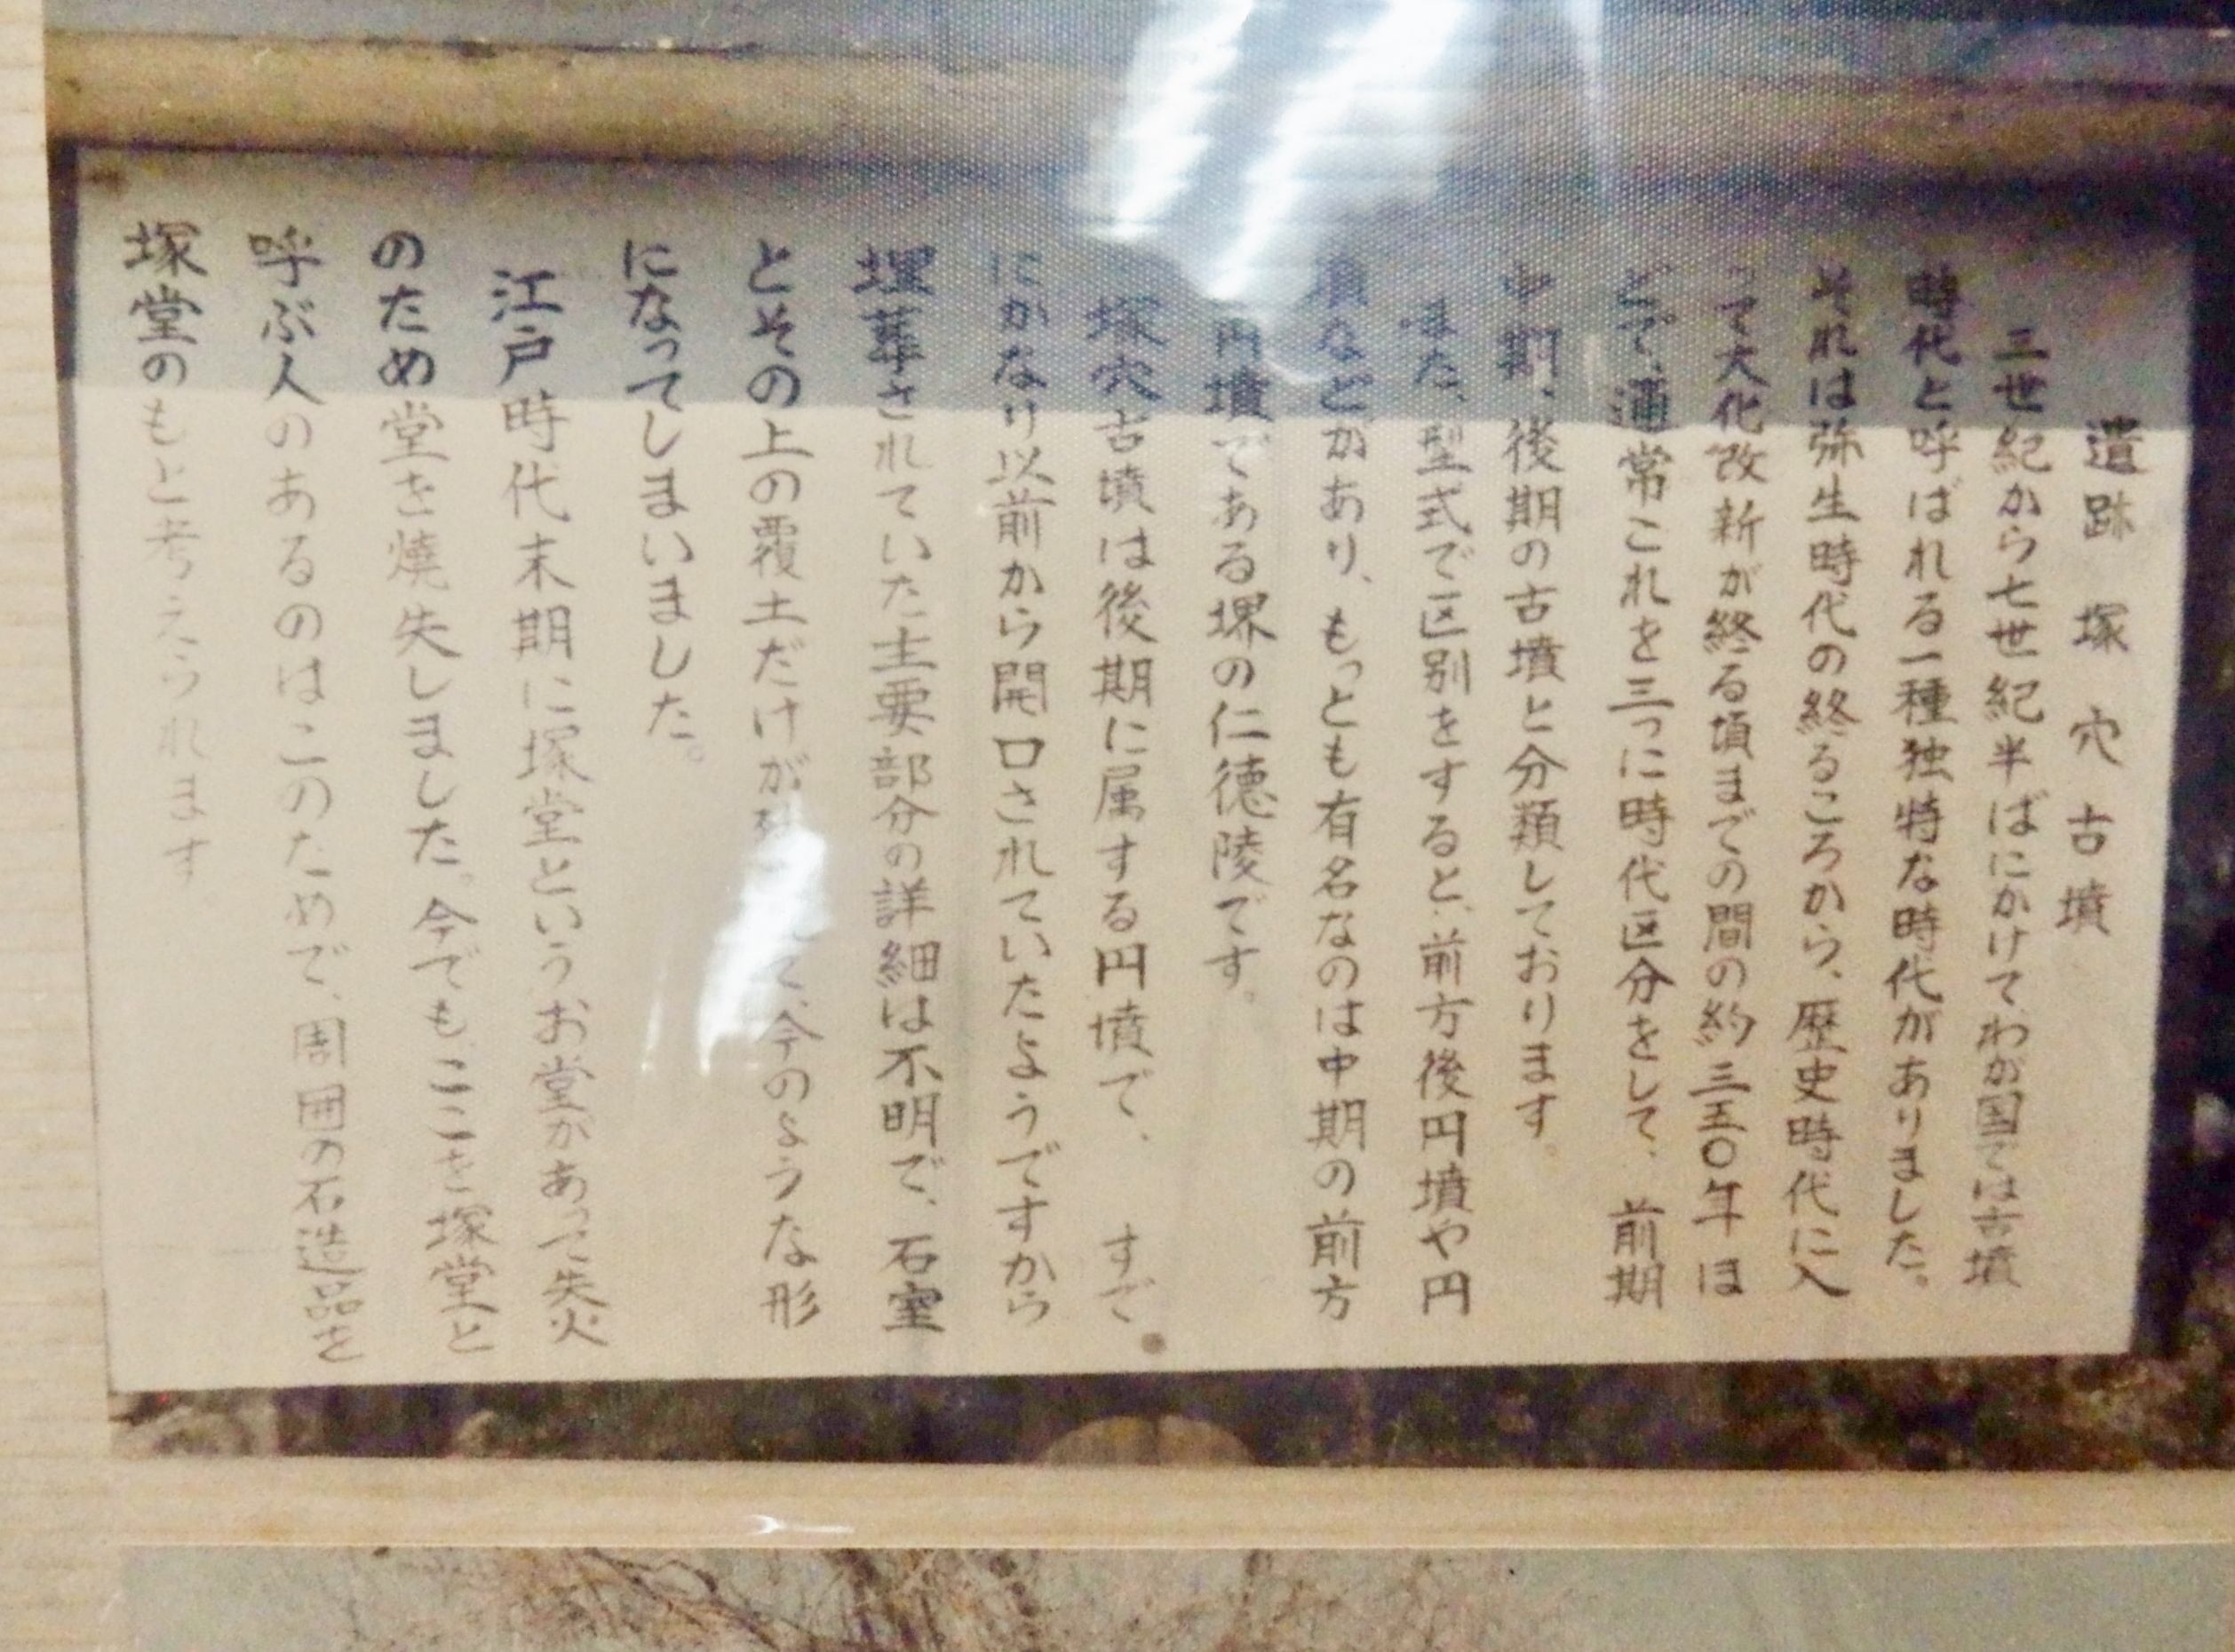 遺跡 塚穴古墳
三世紀から七世紀半ばにかけてわが国では古墳
時代と呼ばれる一種独特な時代がありました。
それは弥生時代の終るころから、歴史時代に入
って大化改新が終る頃までの間の約三五〇年ほ
どで、通常これを三つに時代区分をして、前期
中期、後期の古墳と分類しております。
また、型式で区別をすると、前方後円墳や円
墳などがあり、もっとも有名なのは中期の前方
円墳である堺の仁徳陵です。
塚穴古墳は後期に属する円墳で、すで
にかなり以前から開口されていたようですから
埋葬されていた主要部分の詳細は不明で、石室
とその上の覆土だけが残って、今のような形
になってしまいました。
江戸時代末期に塚堂というお堂があって失火
のため堂を焼失しました。今でもここを塚堂と
呼ぶ人のあるのはこのためで、周囲の石造品を
塚堂のもと考えられます。